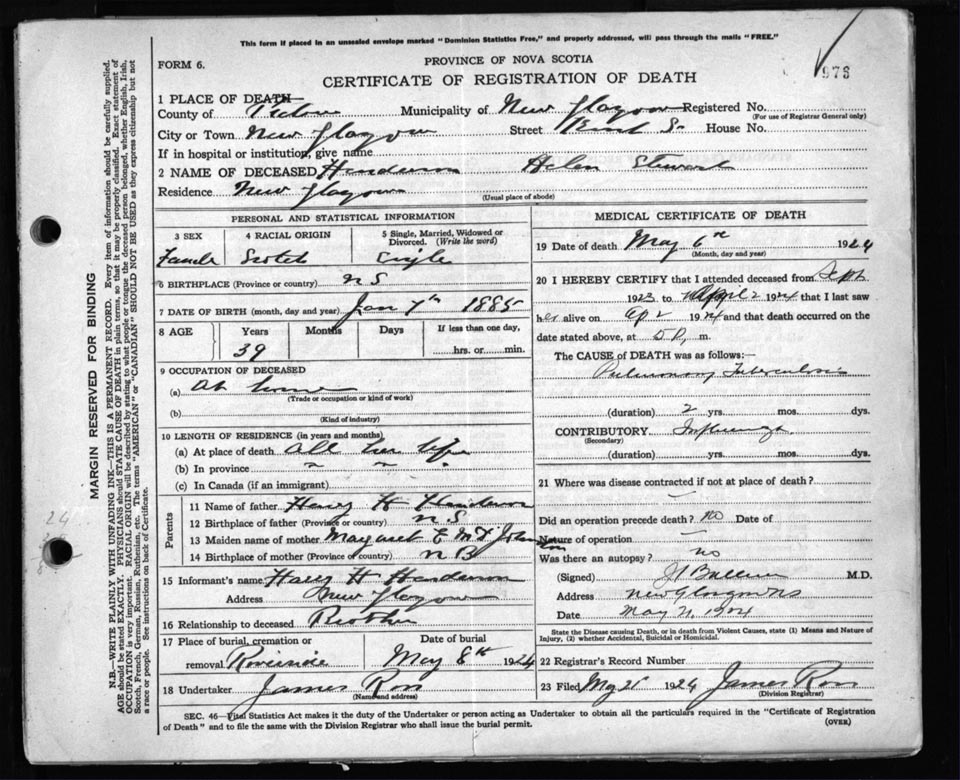 This form if placed in an unsealed envelope marked "Dominion Statistics Free," and properly addressed, will pass through the mails "FREE."
FORM 6.
PROVINCE OF NOVA SCOTIA
CERTIFICATE OF REGISTRATION OF DEATH
978
1 PLACE OF DEATH
County of Pictou Municipality of New Glasgow Registered No.
(For use of Registrar General only)
City or Town New Glasgow Street House No.
If in hospital or institution, give name
2 NAME OF DECEASED Henderson Helen Stewart
Residence New Glasgow
(Usual place of abode)
PERSONAL AND STATISTICAL INFORMATION
3 SEX 4 RACIAL ORIGIN 5 Single, Married, Widowed or Divorced. (Write the word)
Female Scotch Single
6 BIRTHPLACE (Province or country) N S
7 DATE OF BIRTH (month, day and year) Jan 7th 1885
8 AGE Years Months Days If less than one day,
39 hrs. or min.
9 OCCUPATION OF DECEASED
(a) At home
(Trade or occupation or kind of work)
(b)
(Kind of industry)
10 LENGTH OF RESIDENCE (in years and months)
(a) At place of death all her life
(b) In province " " "
(c) In Canada (if an immigrant)
Parents
11 Name of father Harry H Henderson
12 Birthplace of father (Province or country) N S
13 Maiden name of mother Margaret E Johnson
14 Birthplace of mother (Province or country) N B
15 Informant's name Harry H Henderson
Address New Glasgow
16 Relationship to deceased Brother
17 Place of burial, cremation or removal Date of burial
Riverside May 8th 1924
18 Undertaker James Ross
(Name and address)
MEDICAL CERTIFICATE OF DEATH
19 Date of death May 6th 1924
(Month, day and year)
20 I HEREBY CERTIFY that I attended deceased from Sept
1923 to April 2 1924 that I last saw
her alive on Ap 2 1924 and that death occurred on the
date stated above, at 5 P. m.
The CAUSE of DEATH was as follows:—
Pulmonary Tuberculosis
(duration) 2 yrs. mos. dys.
CONTRIBUTORY Influenza
(Secondary)
(duration) yrs. mos. dys.
21 Where was disease contracted if not at place of death?
—
Did an operation precede death? No Date of
Nature of operation —
Was there an autopsy? no
(Signed) M.D.
Address New Glasgow NS
Date May 21, 1924
State the Disease causing Death, or in death from Violent Causes, state (1) Means and Nature of Injury, (2) whether Accidental, Suicidal or Homicidal.
22 Registrar's Record Number
23 Filed May 21 1924 James Ross
(Division Registrar)
SEC. 46—Vital Statistics Act makes it the duty of the Undertaker or person acting as Undertaker to obtain all the particulars required in the "Certificate of Registration
of Death" and to file the same with the Division Registrar who shall issue the burial permit.
(OVER)
MARGIN RESERVED FOR BINDING
N.B.—WRITE PLAINLY WITH UNFADING INK—THIS IS A PERMANENT RECORD. Every item of information should be carefully supplied.
AGE should be stated EXACTLY. PHYSICIANS should STATE CAUSE OF DEATH in plain terms, so that it may be properly classified. Exact statement of
OCCUPATION is very important. RACIAL ORIGIN will be described by stating to what people or tongue the deceased person belonged, whether English, Irish,
Scotch, French, German, Russian, Ruthenian, etc. The terms "AMERICAN" or "CANADIAN" SHOULD NOT BE USED as they express citizenship but not
a race or people. See instructions on back of Certificate.
24